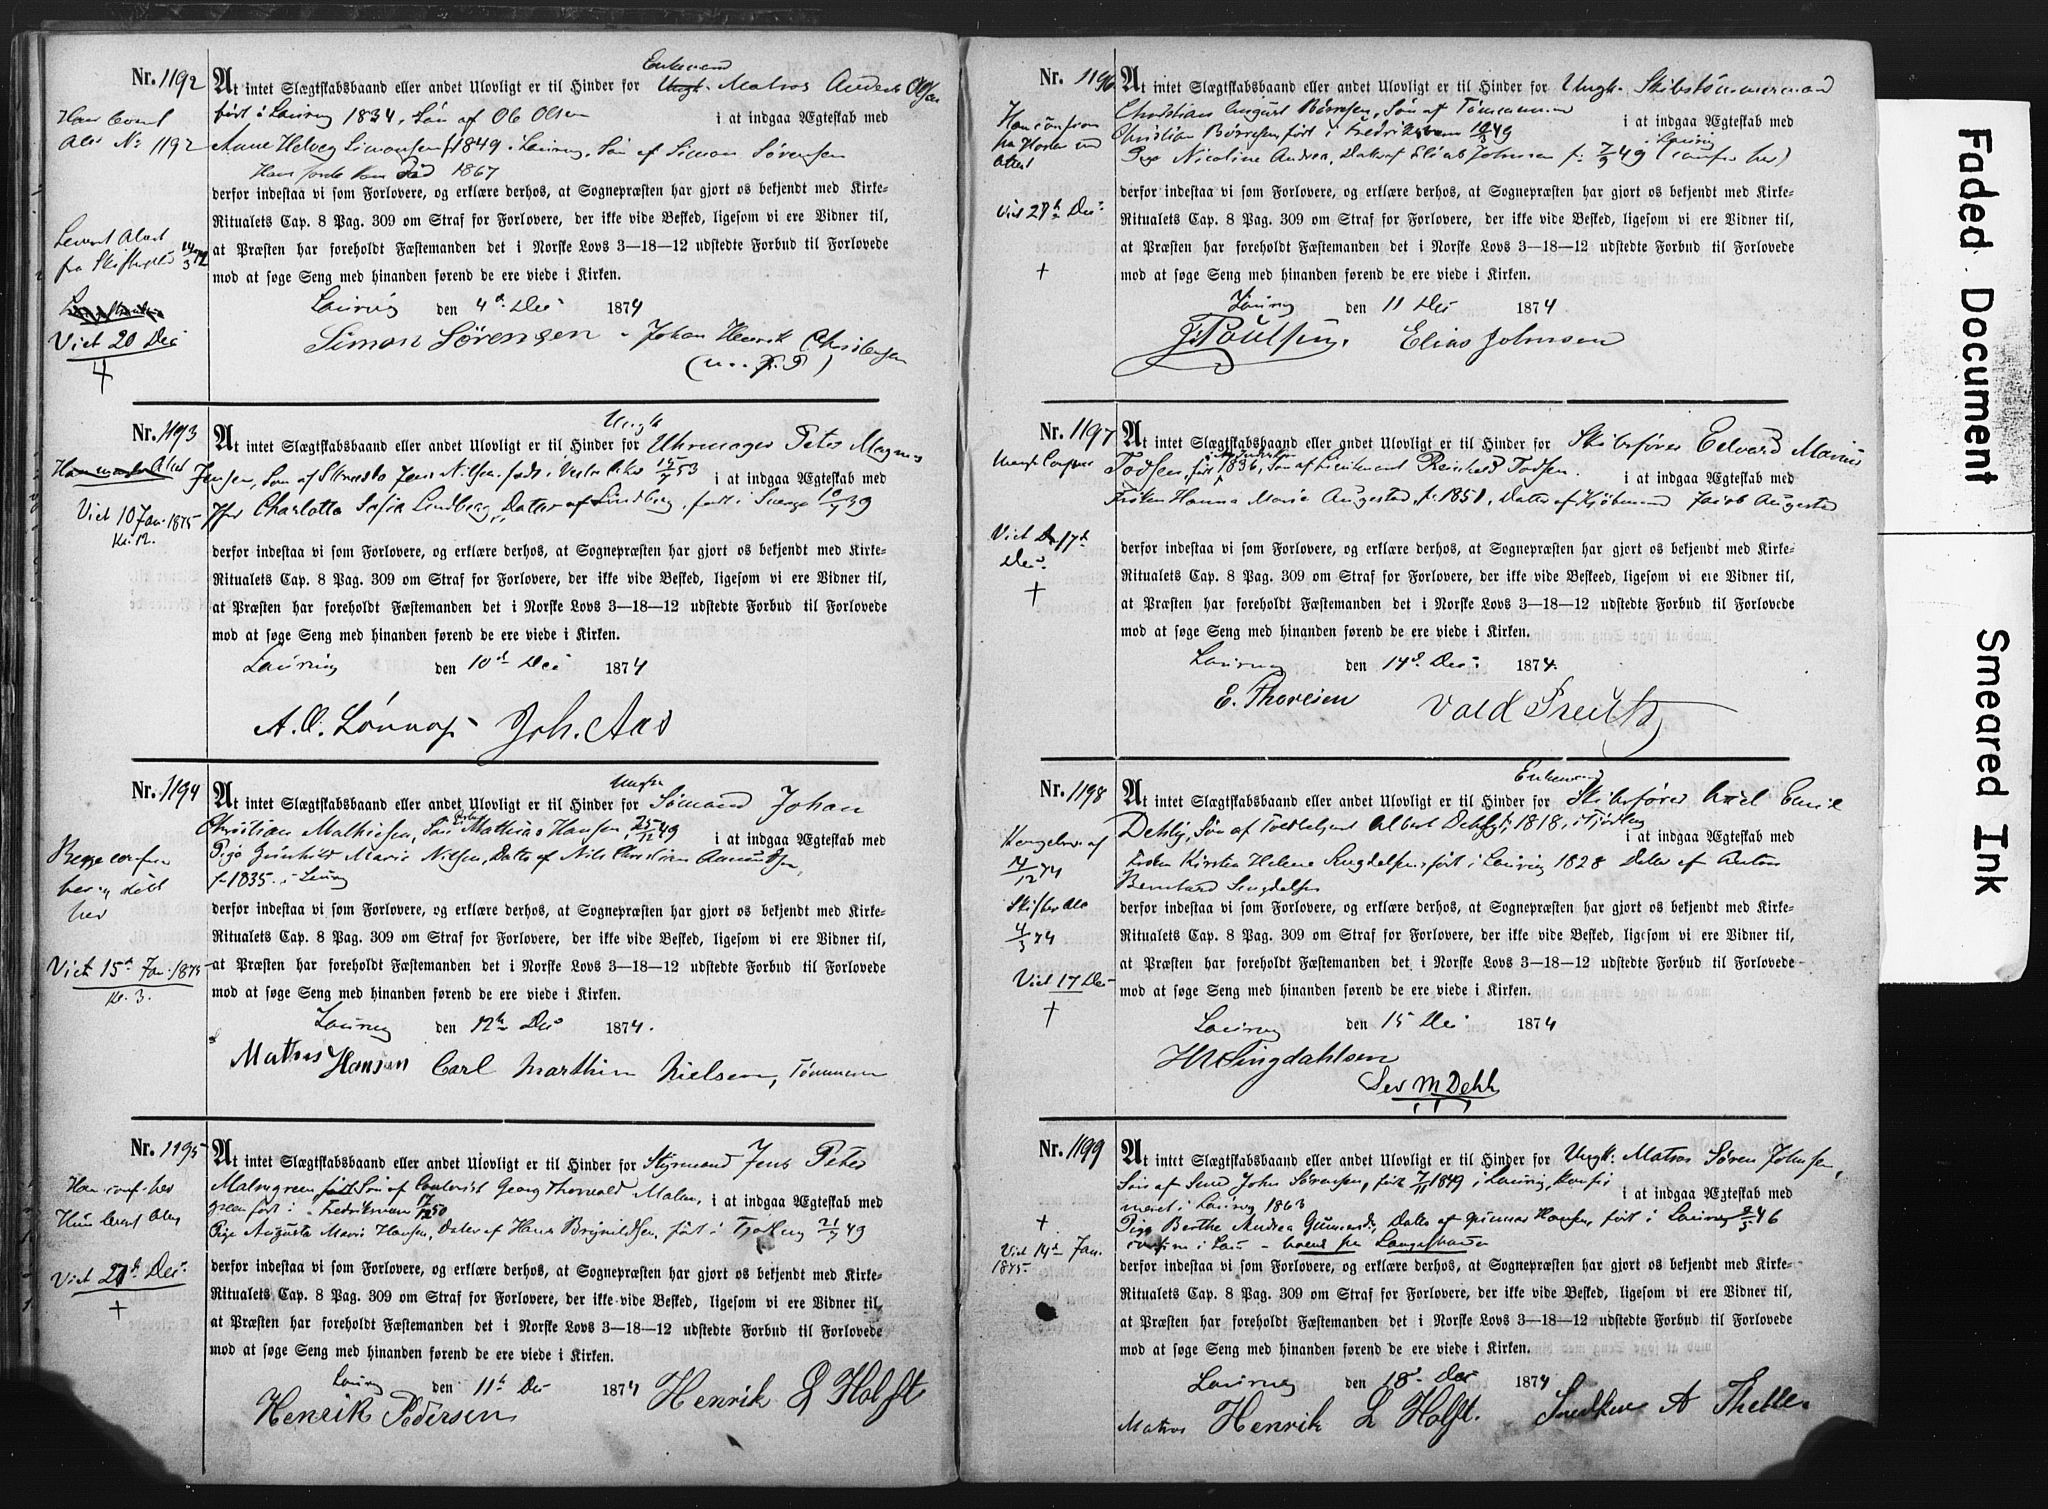 Nr. 1192
At intet Slægtskabsbaand eller andet Ulovligt er til Hinder for Ungk. Enkemand Matros Anders Olsen
født i Laurvig 1834, Søn af Ole Olsen i at indgaa Ægteskab med
Anne Helvig Simonsen f 1849 i Laurvig, af Simon Sørensen
Hans forste Kone Død 1867
derfor indestaa vi som Forlovere, og erklære derhos, at Sognepræsten har gjort os bekjendt med Kirke-
Ritualets Cap. 8 Pag. 309 om Straf for Forlovere, der ikke vide Besked, ligesom vi ere Vidner til,
at Præsten har foreholdt Fæstemanden det i Norske Lovs 3—18—12 udstedte Forbud til Forlovede
mod at søge Seng med hinanden førend de ere viede i Kirken.
Laurvig den 4d Dec 1874
Simon Sørensen Johan Henrik Christensen
(m. p. P)
Han levert
Alo No 1192
Levert
fra Skifteret 14/3 72
Viet 20 Dec
Nr. 1193
At intet Slægtskabsbaand eller andet Ulovligt er til Hinder for Ungk Uhrmager Peter Magnus
Jensen, Søn af Jens Nilsen, født i 53 i at indgaa Ægteskab med
Jfr Charlotte Sofia Lindberg, Datter af Lindberg, født i Sverge 39
derfor indestaa vi som Forlovere, og erklære derhos, at Sognepræsten har gjort os bekjendt med Kirke-
Ritualets Cap. 8 Pag. 309 om Straf for Forlovere, der ikke vide Besked, ligesom vi ere Vidner til,
at Præsten har foreholdt Fæstemanden det i Norske Lovs 3—18—12 udstedte Forbud til Forlovede
mod at søge Seng med hinanden førend de ere viede i Kirken.
Laurvig den 10d Dec 1874
A. O. Joh. Aas
Viet 10 Jan. 1875
Kl. 12.
Nr. 1194
At intet Slægtskabsbaand eller andet Ulovligt er til Hinder for Ungk Sømand Johan
Christian Mathisen, Søn af Mathias Hansen, 25/12 49 i at indgaa Ægteskab med
Pige Gunhild Marie Nilsen, Datter af Nils Christian
f. 1835. i Laurvig
derfor indestaa vi som Forlovere, og erklære derhos, at Sognepræsten har gjort os bekjendt med Kirke-
Ritualets Cap. 8 Pag. 309 om Straf for Forlovere, der ikke vide Besked, ligesom vi ere Vidner til,
at Præsten har foreholdt Fæstemanden det i Norske Lovs 3—18—12 udstedte Forbud til Forlovede
mod at søge Seng med hinanden førend de ere viede i Kirken.
Laurvig den 12te Dec 1874.
Mathis Hansen Carl Marthin Nielsen, Tømmerm
Begge confir
her og døbt
her
Viet 15d Jan. 1875
Kl. 3.
Nr. 1195
At intet Slægtskabsbaand eller andet Ulovligt er til Hinder for Styrmand Jens Peter
Malmgreen født Søn af Georg Thorvald Malm i at indgaa Ægteskab med
green født i Fredriksværn 17/12 50
Pige Augusta Marie Hansen, Datter af Hans Brynildsen, født i Tjølling 21/7 49
derfor indestaa vi som Forlovere, og erklære derhos, at Sognepræsten har gjort os bekjendt med Kirke-
Ritualets Cap. 8 Pag. 309 om Straf for Forlovere, der ikke vide Besked, ligesom vi ere Vidner til,
at Præsten har foreholdt Fæstemanden det i Norske Lovs 3—18—12 udstedte Forbud til Forlovede
mod at søge Seng med hinanden førend de ere viede i Kirken.
Laurvig den 11te Dec 1874
Henrik Pedersen Henrik L Holst
Han conf. her
Hun levert
Viet 27d Dec.
Nr. 1196
At intet Slægtskabsbaand eller andet Ulovligt er til Hinder for Ungk. Skibstømmermand
Christian August Børresen, Søn af Tømmermand i at indgaa Ægteskab med
Christian Børresen, født i Fredriksværn 49
Pige Nicoline Andrea, Datter af Elias Johnsen f. 7/9 49 i Laurvig (confir her)
derfor indestaa vi som Forlovere, og erklære derhos, at Sognepræsten har gjort os bekjendt med Kirke-
Ritualets Cap. 8 Pag. 309 om Straf for Forlovere, der ikke vide Besked, ligesom vi ere Vidner til,
at Præsten har foreholdt Fæstemanden det i Norske Lovs 3—18—12 udstedte Forbud til Forlovede
mod at søge Seng med hinanden førend de ere viede i Kirken.
Laurvig den 11 Dec 1874
J. Poulsen. Elias Johnsen
Viet 27de Dec.
Nr. 1197
At intet Slægtskabsbaand eller andet Ulovligt er til Hinder for Skibsfører Edvard Marius
Todsen, født 1836, Søn af Lieutenant Reinhold Todsen. i at indgaa Ægteskab med
Frøken Hanna Marie Augestad, f. 1851, Datter af Kjøbmand Jacob Augestad
derfor indestaa vi som Forlovere, og erklære derhos, at Sognepræsten har gjort os bekjendt med Kirke-
Ritualets Cap. 8 Pag. 309 om Straf for Forlovere, der ikke vide Beskeed, ligesom vi ere Vidner til,
at Præsten har foreholdt Fæstemanden det i Norske Lovs 3—18—12 udstedte Forbud til Forlovede
mod at søge Seng med hinanden førend de ere viede i Kirken.
Laurvig den 14d. Dec. 1874.
E. Thoresen
Viet D. 17d
Dec.
Nr. 1198
At intet Slægtskabsbaand eller andet Ulovligt er til Hinder for Enkemand Skibsfører Axel Emil
Dehly, Søn af Toldbetjent Albert Dehly f. 1818, i Tjølling i at indgaa Ægteskab med
Frøken Kirstin Helene Singdalsen, født i Laurvig 1828 Datter af Anton
Bernhard Singdalsen
derfor indestaa vi som Forlovere, og erklære derhos, at Sognepræsten har gjort os bekjendt med Kirke-
Ritualets Cap. 8 Pag. 309 om Straf for Forlovere, der ikke vide Besked, ligesom vi ere Vidner til,
at Præsten har foreholdt Fæstemanden det i Norske Lovs 3—18—12 udstedte Forbud til Forlovede
mod at søge Seng med hinanden førend de ere viede i Kirken.
Laurvig den 15 Dec 1874
Singdahlsen
M Dehli
Kongebrev af
14/12 74
Skifte
4/3 74
Viet 17 Dec
Nr. 1199
At intet Slægtskabsbaand eller andet Ulovligt er til Hinder for Ungk. Matros Søren Johnsen,
Søn af John Sørensen, født 7/11 1849 i Laurvig, Konfir i at indgaa Ægteskab med
meret i Laurvig 1863
Pige Berthe Andrea Gunnersdr, Datter af Gunner Hansen, født i Laurvig 46
confirm i Laur
derfor indestaa vi som Forlovere, og erklære derhos, at Sognepræsten har gjort os bekjendt med Kirke-
Ritualets Cap. 8 Pag. 309 om Straf for Forlovere, der ikke vide Besked, ligesom vi ere Vidner til,
at Præsten har foreholdt Fæstemanden det i Norske Lovs 3—18—12 udstedte Forbud til Forlovede
mod at søge Seng med hinanden førend de ere viede i Kirken.
Laurvig den 18d. Dec 1874
Matros Henrik L Holst. Snedker A Thelle
Viet 14de Jan.
1875
Faded Document
Smeared Ink